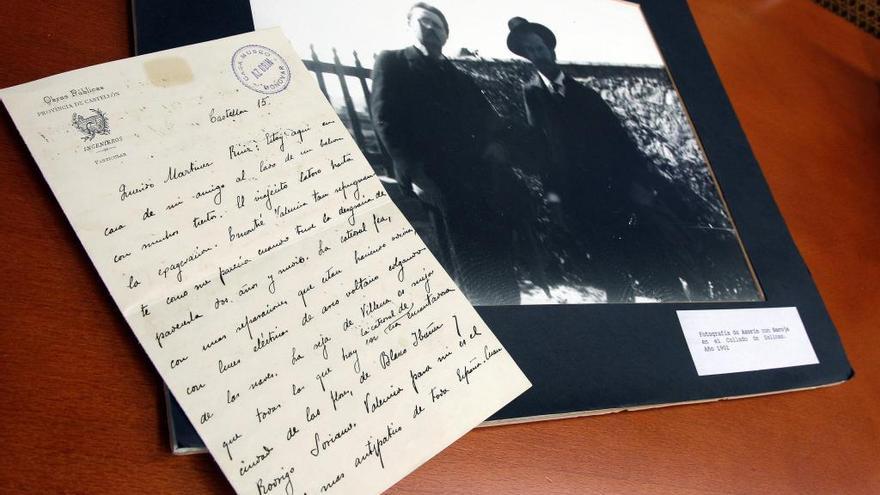 Obras Públicas
PROVINCIA DE CASTELLÓN
INGENIEROS
PARTICULAR
CASA MUSEO
AZORIN
MONOVAR
Castellon 15
Querido Martinez Ruiz: Estoy aqui en
casa de mi amigo al lado de un balcon
con muchos tiestos. El viajecito latoso hasta
la exageracion. Encontré Valencia tan repugnan-
te como me parecia cuando tuve la desgracia de
padecerla dos años y medio. La catedral fea,
con unas reparaciones que estan haciendo
con luces eléctricas de arco voltaico colgando
de las naves. La reja de Villena es mejor
que todas las que hay en la catedral de esta encantadora
ciudad de las flores, de Blasco Ibáñez y
Rodrigo Soriano. Valencia para mi es el
mas antipatico de toda España. Cuan
Fotografía de Azorín con Baroja
en el Collado de Salinas.
Año 1901